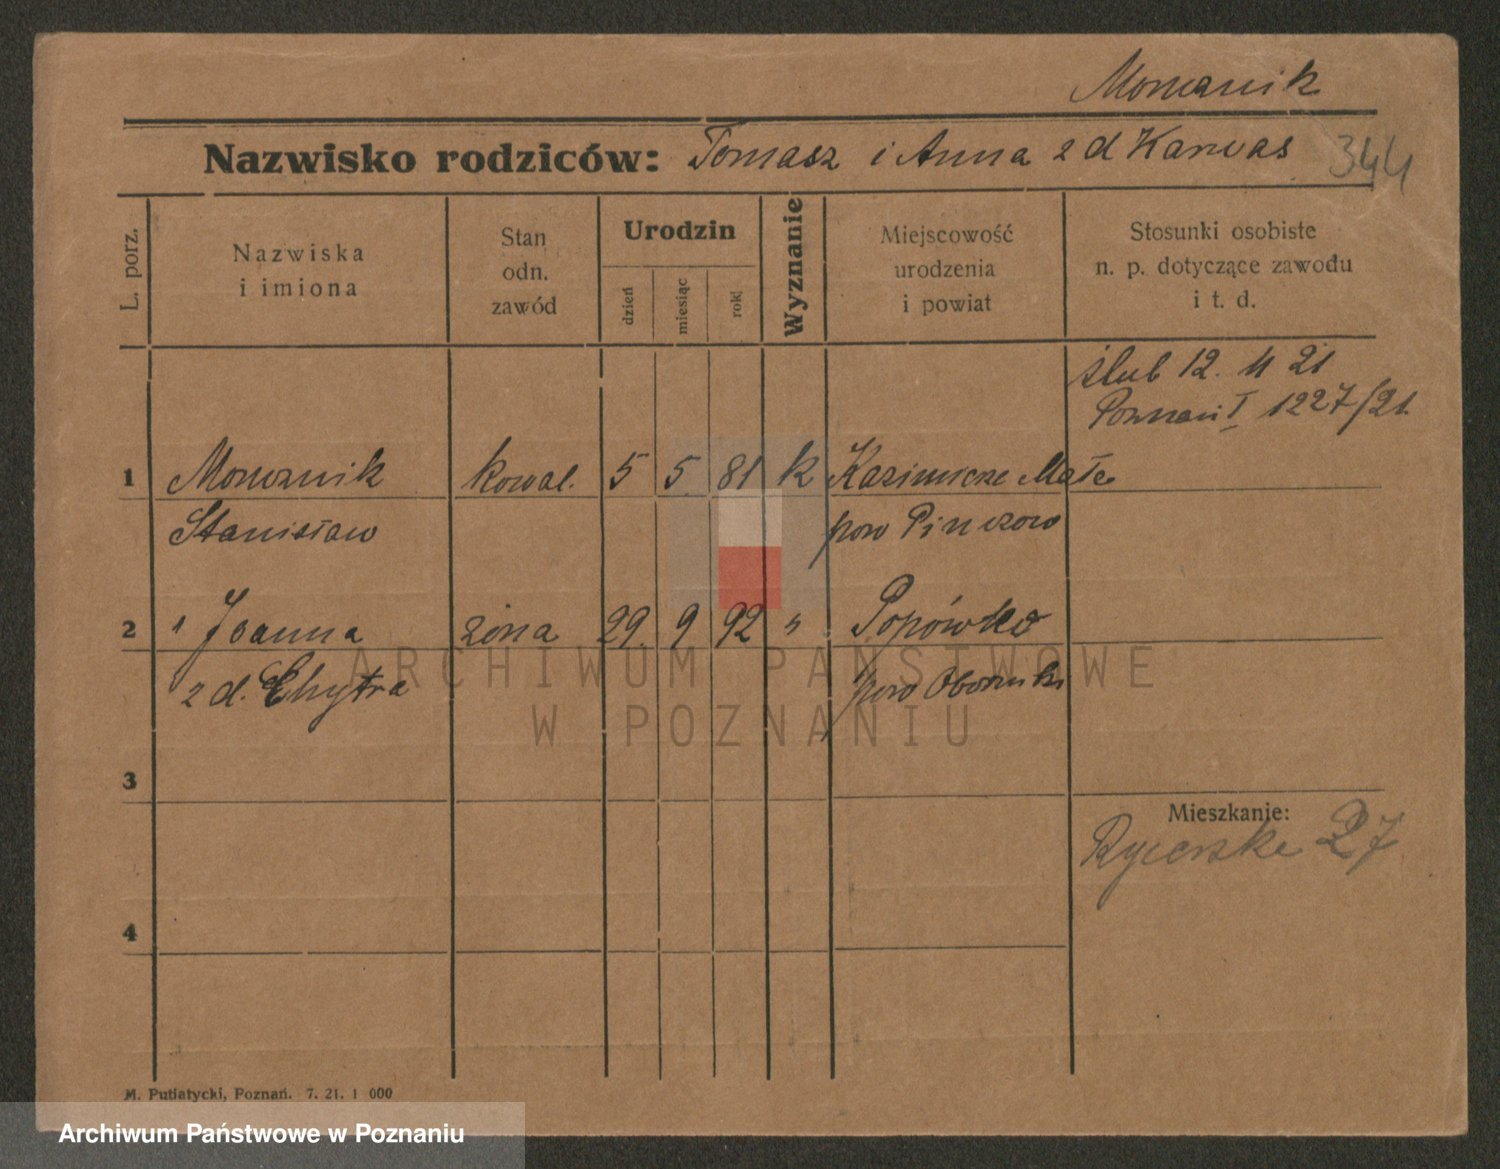 Morwanik
Nazwisko rodziców: Tomasz i Anna z d Karwas 344
L. porz.
Nazwiska
i imiona
Stan
odn.
zawód
Urodzin
dzień
miesiąc
rok
Wyznanie
Miejscowość
urodzenia
i powiat
Stosunki osobiste
n. p. dotyczące zawodu
i t. d.
ślub 12. 11 21
Poznań I 1227/21
1 Morwanik kowal. 5 5. 81 k Kazimierze Małe
Stanisław pow Pinczow
2 Joanna żona 29. 9 92 " Popówko
z d. Chytra pow Oborniki
3
Mieszkanie:
Rycerska 27
4
ARCHIWUM PAŃSTWOWE
W POZNANIU
M. Putiatycki, Poznań. 7. 21. 1 000
Archiwum Państwowe w Poznaniu